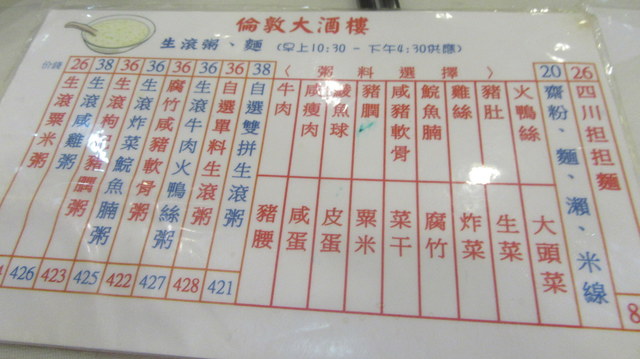 倫敦大酒樓
生滾粥、麵 (早上10:30 - 下午4:30供應)
價錢 26 38 36 36 36 36 36 38 〈粥料選擇〉 20 26
生滾粟米粥
生滾咸雞粥
生滾枸杞豬膶粥
生滾炸菜鯇魚腩粥
腐竹咸豬軟骨粥
生滾牛肉火鴨絲粥
自選單料生滾粥
自選雙拼生滾粥
牛肉
咸瘦肉
鯪魚球
豬膶
咸豬軟骨
鯇魚腩
雞絲
豬肚
火鴨絲
豬腰
咸蛋
皮蛋
粟米
菜干
腐竹
炸菜
生菜
大頭菜
齋粉、麵、瀨、米線
四川担担麵
426 423 425 422 427 428 421